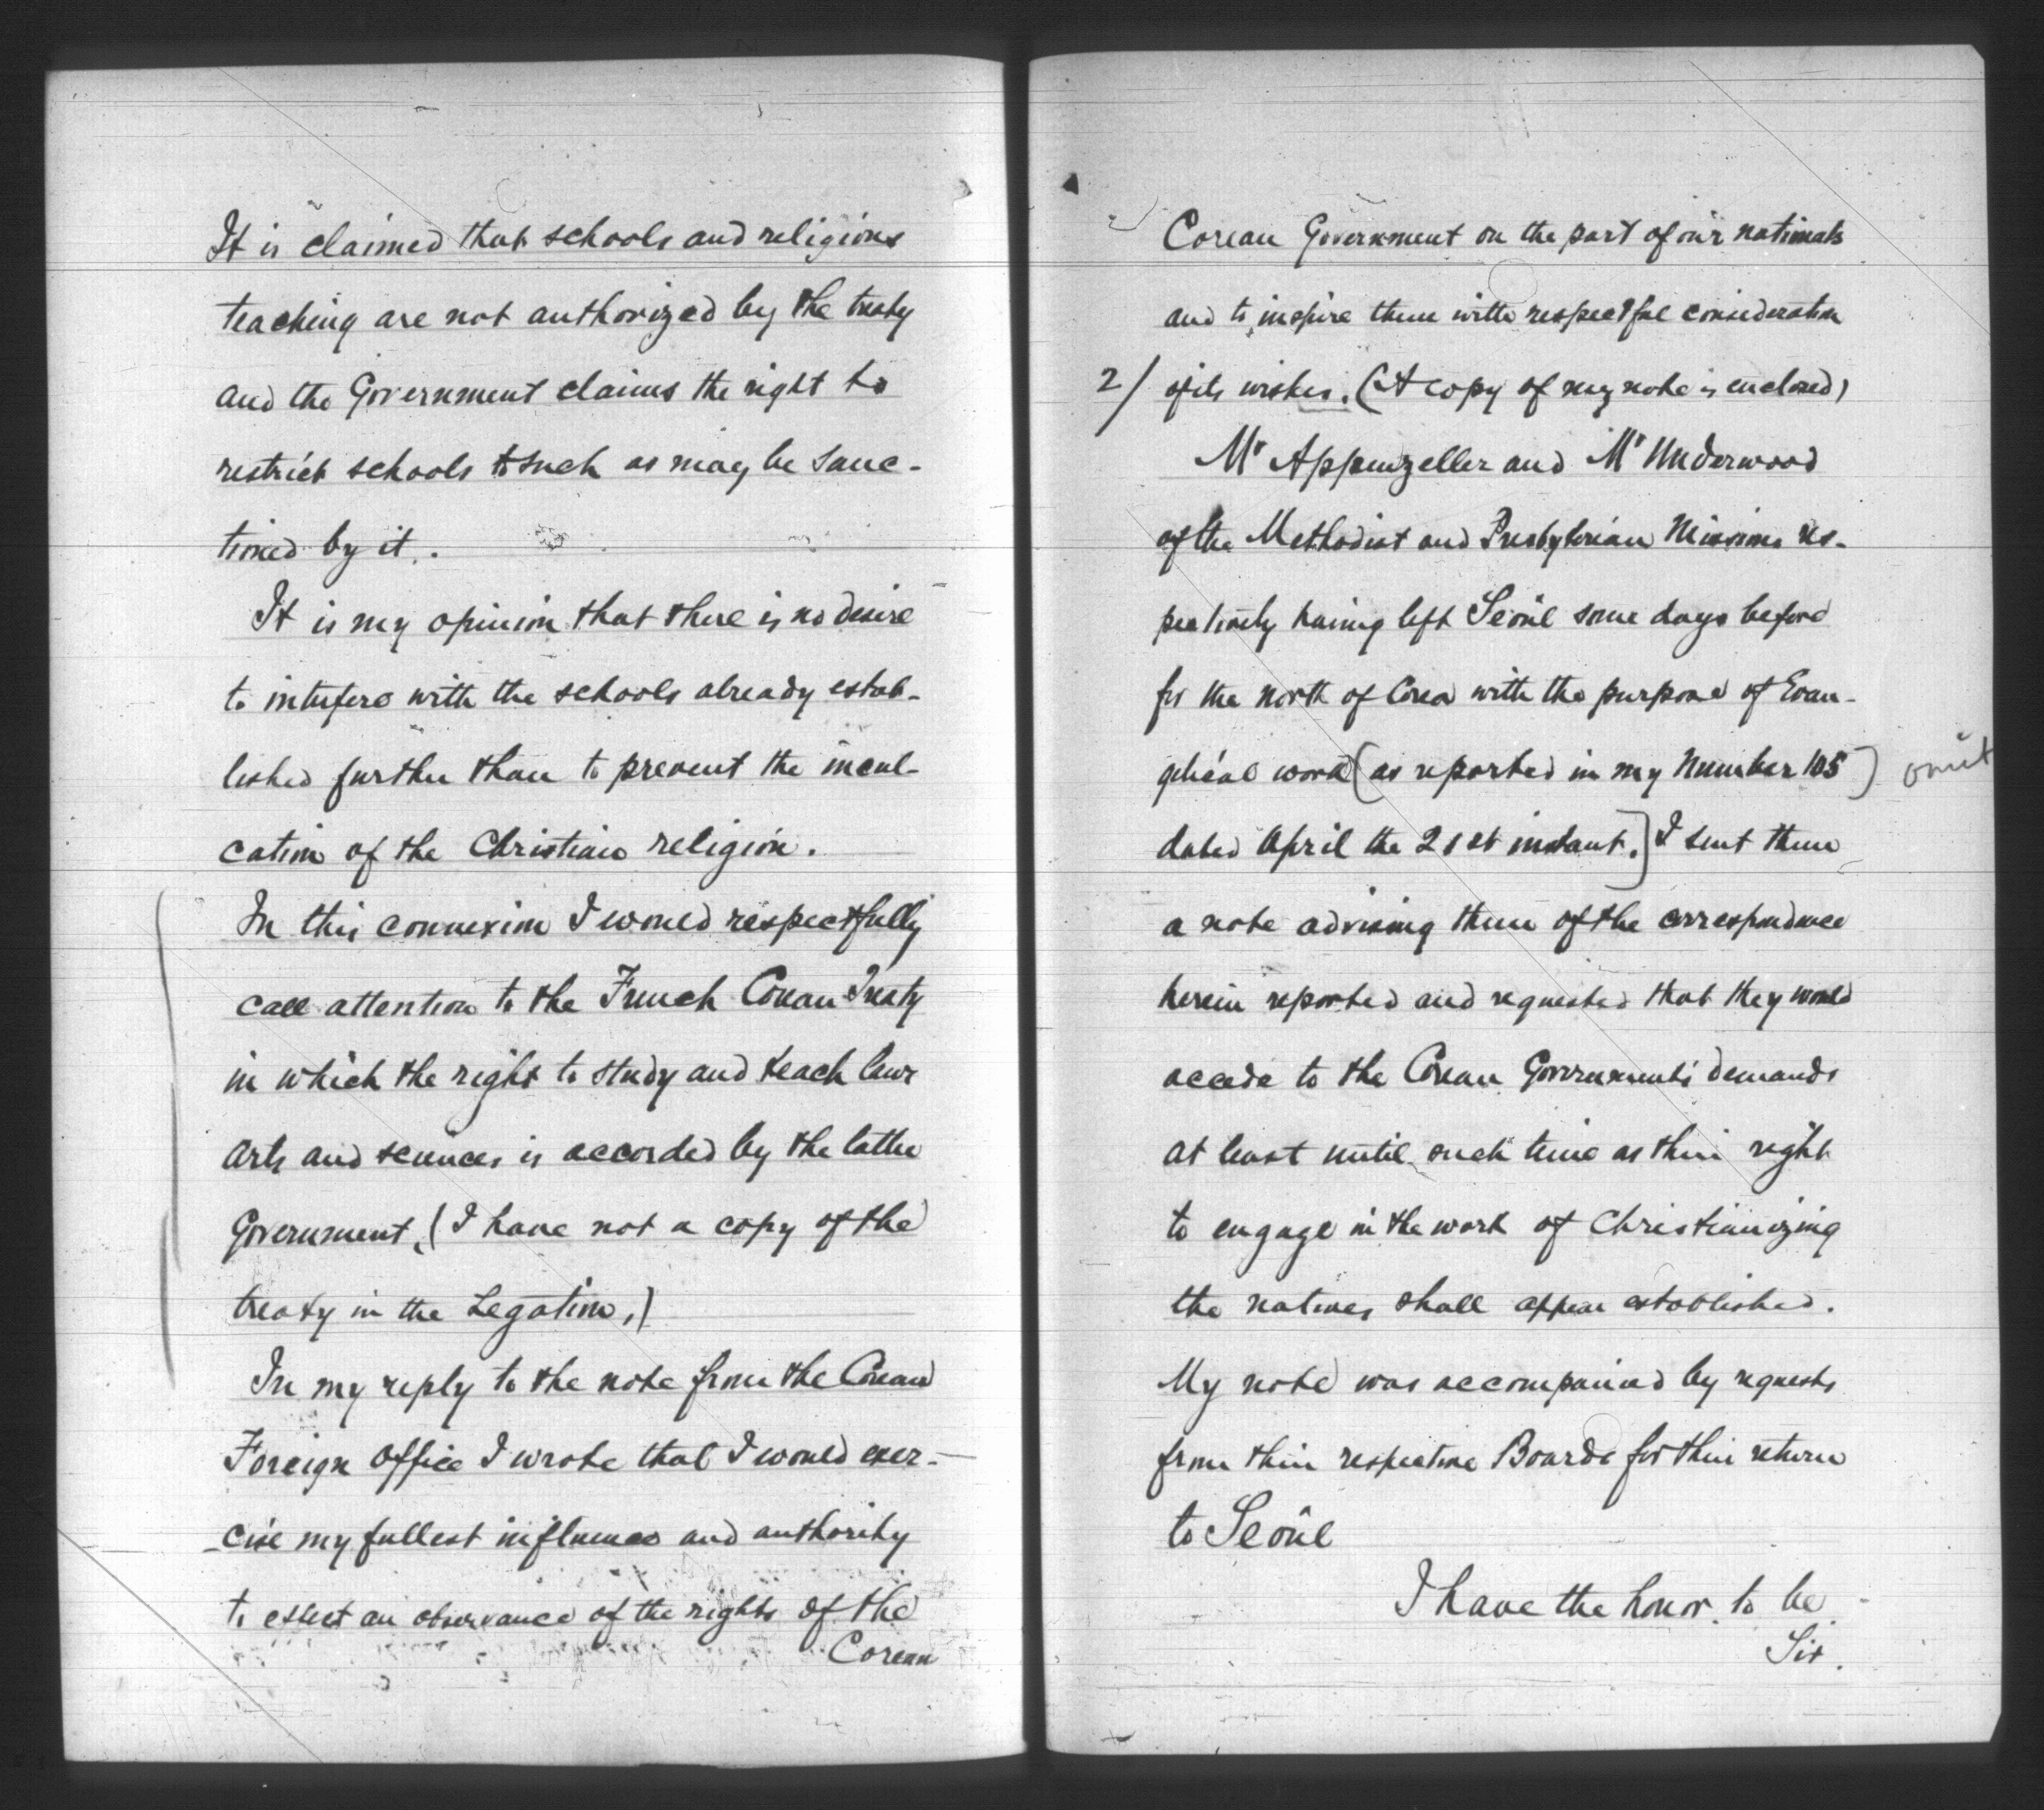 It is claimed that schools and religious
teaching are not authorized by the treaty
and the Government claims the right to
restrict schools to such as may be sanc-
tioned by it.
It is my opinion that there is no desire
to interfere with the schools already estab-
lished further than to prevent the incul-
cation of the Christian religion.
In this connexion I would respectfully
call attention to the French Corean Treaty
in which the right to study and teach laws
arts and sciences is accorded by the latter
Government, (I have not a copy of the
treaty in the Legation,)
In my reply to the note from the Corean
Foreign Office I wrote that I would exer-
cise my fullest influence and authority
to effect an observance of the rights of the
Corean
Corean Government on the part of our nationals
and to inspire them with respectful consideration
2/ of its wishes. (A copy of my note is enclosed)
Mr Appenzeller and Mr Underwood
of the Methodist and Presbyterian Missions res-
pectively having left Seoul some days before
for the north of Corea with the purpose of Evan-
gelical work (as reported in my Number 105) omit
dated April the 21st instant.] I sent them
a note advising them of the correspondence
herein reported and requested that they would
accede to the Corean Government's demands
at least until such time as their right
to engage in the work of Christianizing
the natives shall appear established.
My note was accompanied by requests
from their respective Boards for their return
to Seoul
I have the honor to be
Sir.